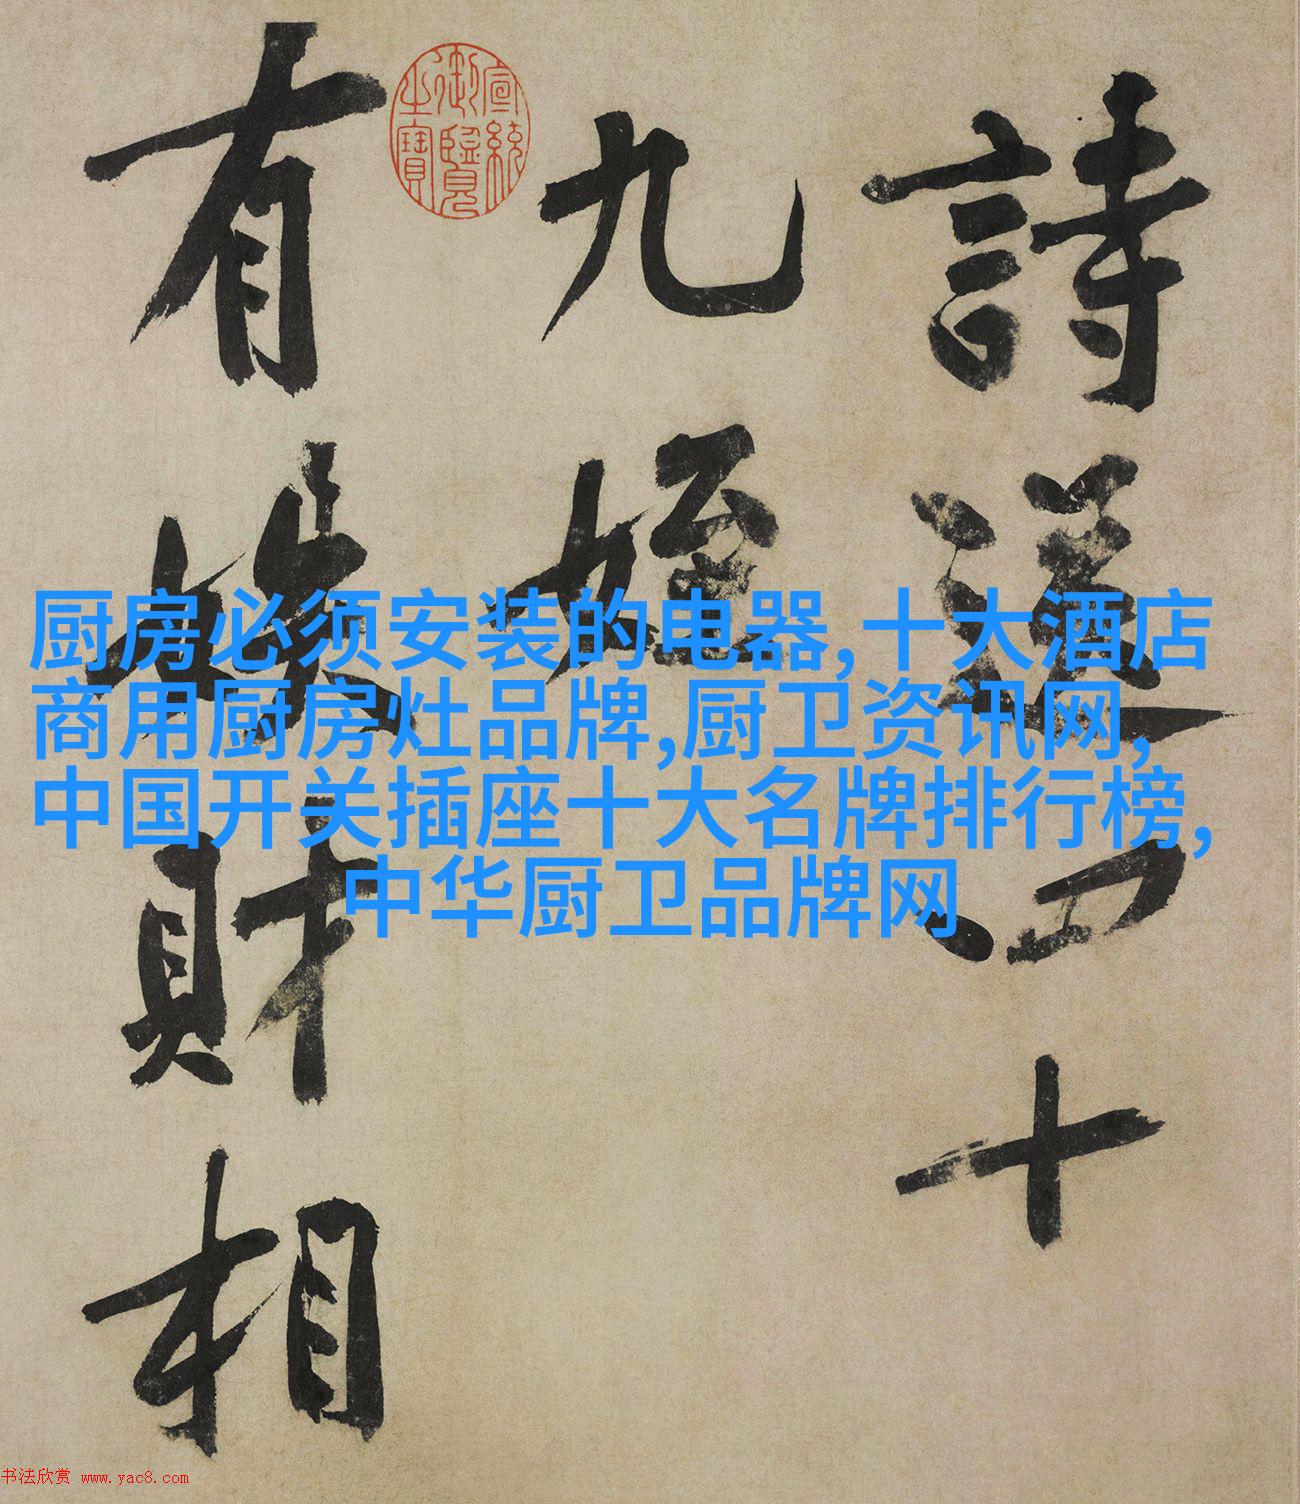 詩送四十
九姪
有
財相
宣統
御覽
之寶
厨房必须安装的电器,十大酒店
商用厨房灶品牌,厨卫资讯网,
中国开关插座十大名牌排行榜,
中华厨卫品牌网
书法欣赏 www.yac8.com